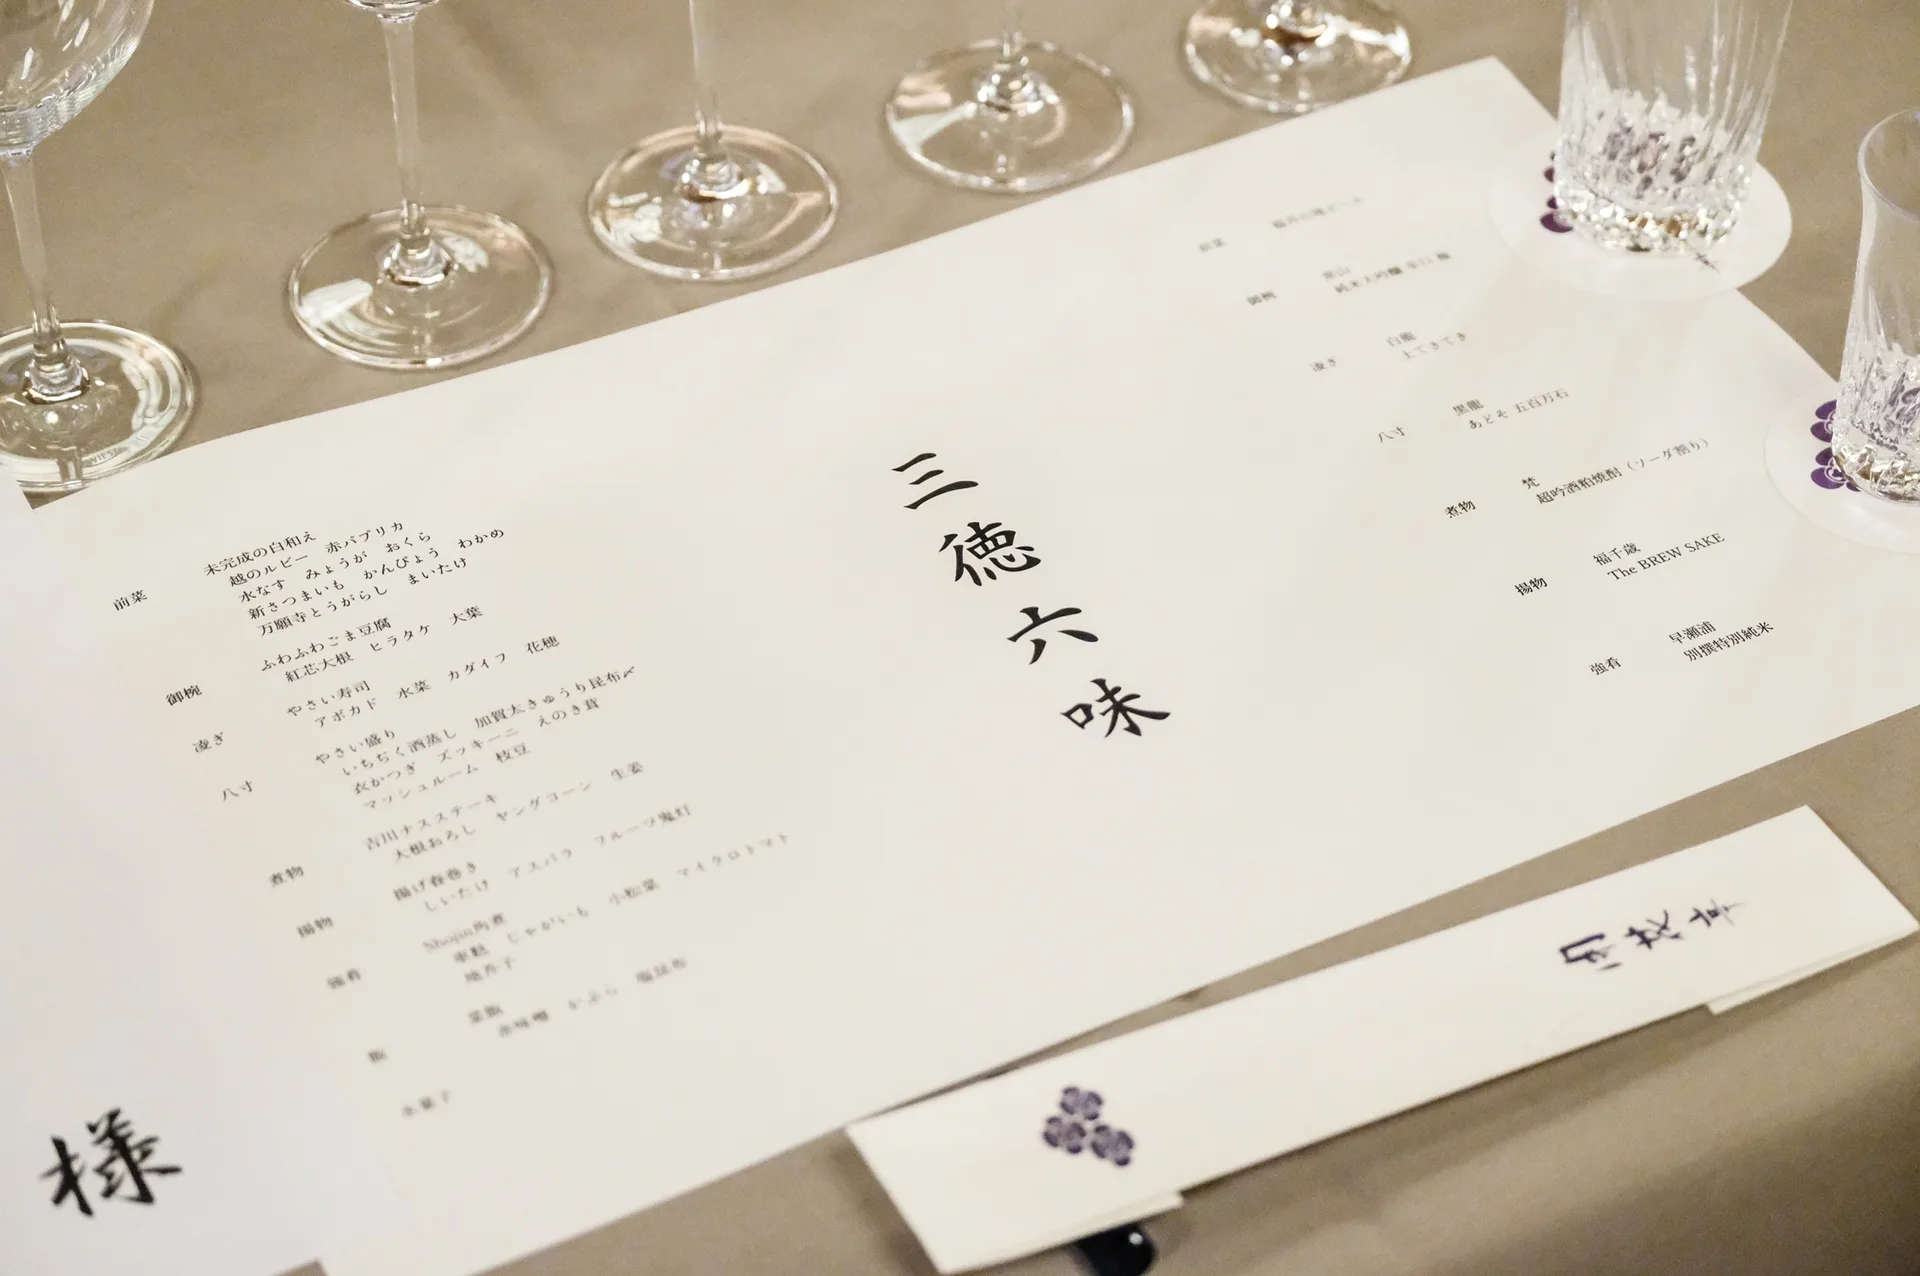 前菜
未完成の白和え
越のルビー 赤パプリカ
水なす みょうが おくら
新さつまいも かんぴょう わかめ
万願寺とうがらし まいたけ
御椀
ふわふわごま豆腐
紅芯大根 ヒラタケ 大葉
凌ぎ
やさい寿司
アボカド 水菜 カダイフ 花穂
八寸
やさい盛り
いちぢく酒蒸し 加賀太きゅうり昆布〆
衣かつぎ ズッキーニ えのき茸
マッシュルーム 枝豆
煮物
吉川ナスステーキ
大根おろし ヤングコーン 生姜
揚物
揚げ春巻き
しいたけ アスパラ フルーツ鬼灯
強肴
Shojin角煮
車麩 じゃがいも 小松菜 マイクロトマト
地芥子
飯
菜飯
赤味噌 かぶら 塩昆布
水菓子
三徳六味
前菜
御椀
純米大吟醸
凌ぎ
白龍
八寸
黒龍
あどそ 五百万石
煮物
梵
超吟酒粕焼酎(ソーダ割り)
揚物
福千歳
The BREW SAKE
強肴
早瀬浦
別撰特別純米
様
開花亭